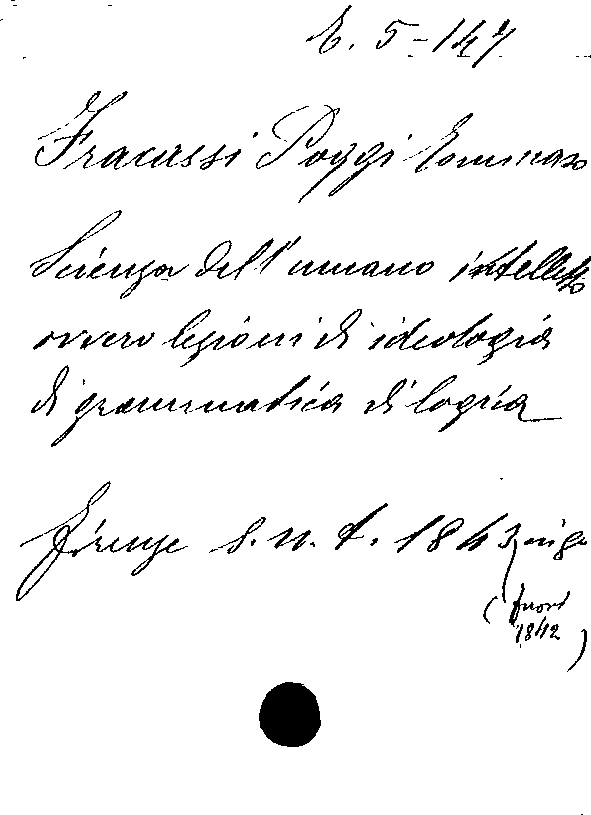 E. 5-147
Fracassi Poggi Tommaso
Scienza dell'umano intelletto
ovvero lezioni di ideologia
di grammatica di logica
Firenze s.n.t. 1843, in 8
(fuori
1842)